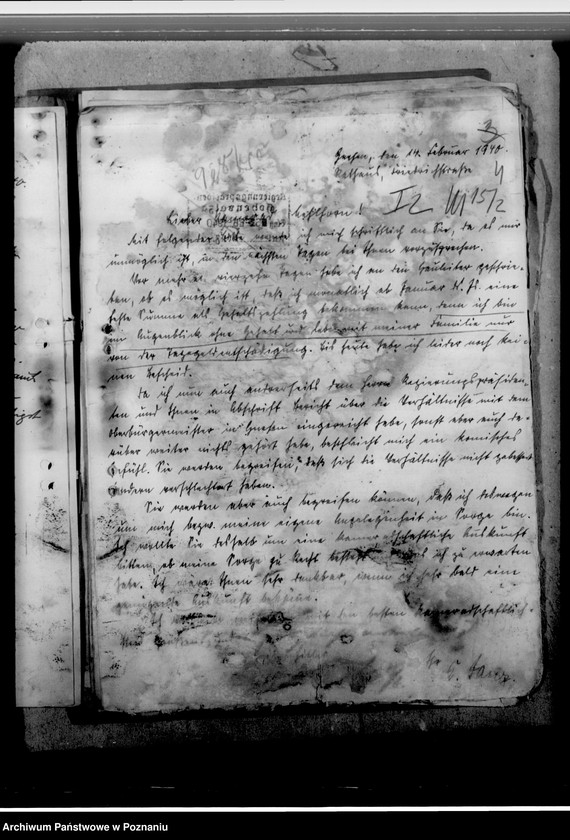 3
Gnesen, den 14. Februar 1940.
Rathaus, Friedrichstraße
I Z 15/2
Lieber Kamerad Kehlhorn!
Mit folgender Bitte wende ich mich schriftlich an Sie, da es mir
unmöglich ist, in den nächsten Tagen bei Ihnen vorzusprechen.
Vor mehr als vierzehn Tagen habe ich an den Gauleiter geschrie-
ben, ob es möglich ist, daß ich monatlich ab Januar ds. Js. eine
feste Summe als Gehaltszahlung bekommen kann, denn ich bin
im Augenblick ohne Gehalt und lebe mit meiner Familie nur
von der Tagegeldentschädigung. Bis heute habe ich leider noch kei-
nen Bescheid.
Da ich nun auch andererseits dem Herrn Regierungspräsiden-
ten und Ihnen in Abschrift Bericht über die Verhältnisse mit dem
Oberbürgermeister in Gnesen eingereicht habe, sonst aber auch da-
rüber weiter nichts gehört habe, beschleicht mich ein komisches
Gefühl. Sie werden begreifen, daß sich die Verhältnisse nicht gebessert
sondern verschlechtert haben.
Sie werden aber auch begreifen können, daß ich deswegen
um mich bezw. meine eigene Angelegenheit in Sorge bin.
Ich wollte Sie deshalb um eine kameradschaftliche Auskunft
bitten, ob meine Sorge zu Recht besteht was ich zu erwarten
habe. Ich wäre Ihnen sehr dankbar, wenn ich sehr bald eine
Auskunft bekäme.
Ich mit den besten kameradschaftlich-
Ihr
Archiwum Państwowe w Poznaniu